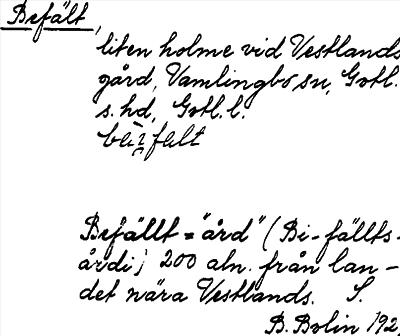 Befält,
liten holme vid Vestlands
gård, Vamlingbo sn, Gotl.
s. hd, Gotl. l.
Befällt = "ård" (Bi-fällts-
årdi; 200 aln. från lan-
det nära Vestlands. S.
B. Bolin 192